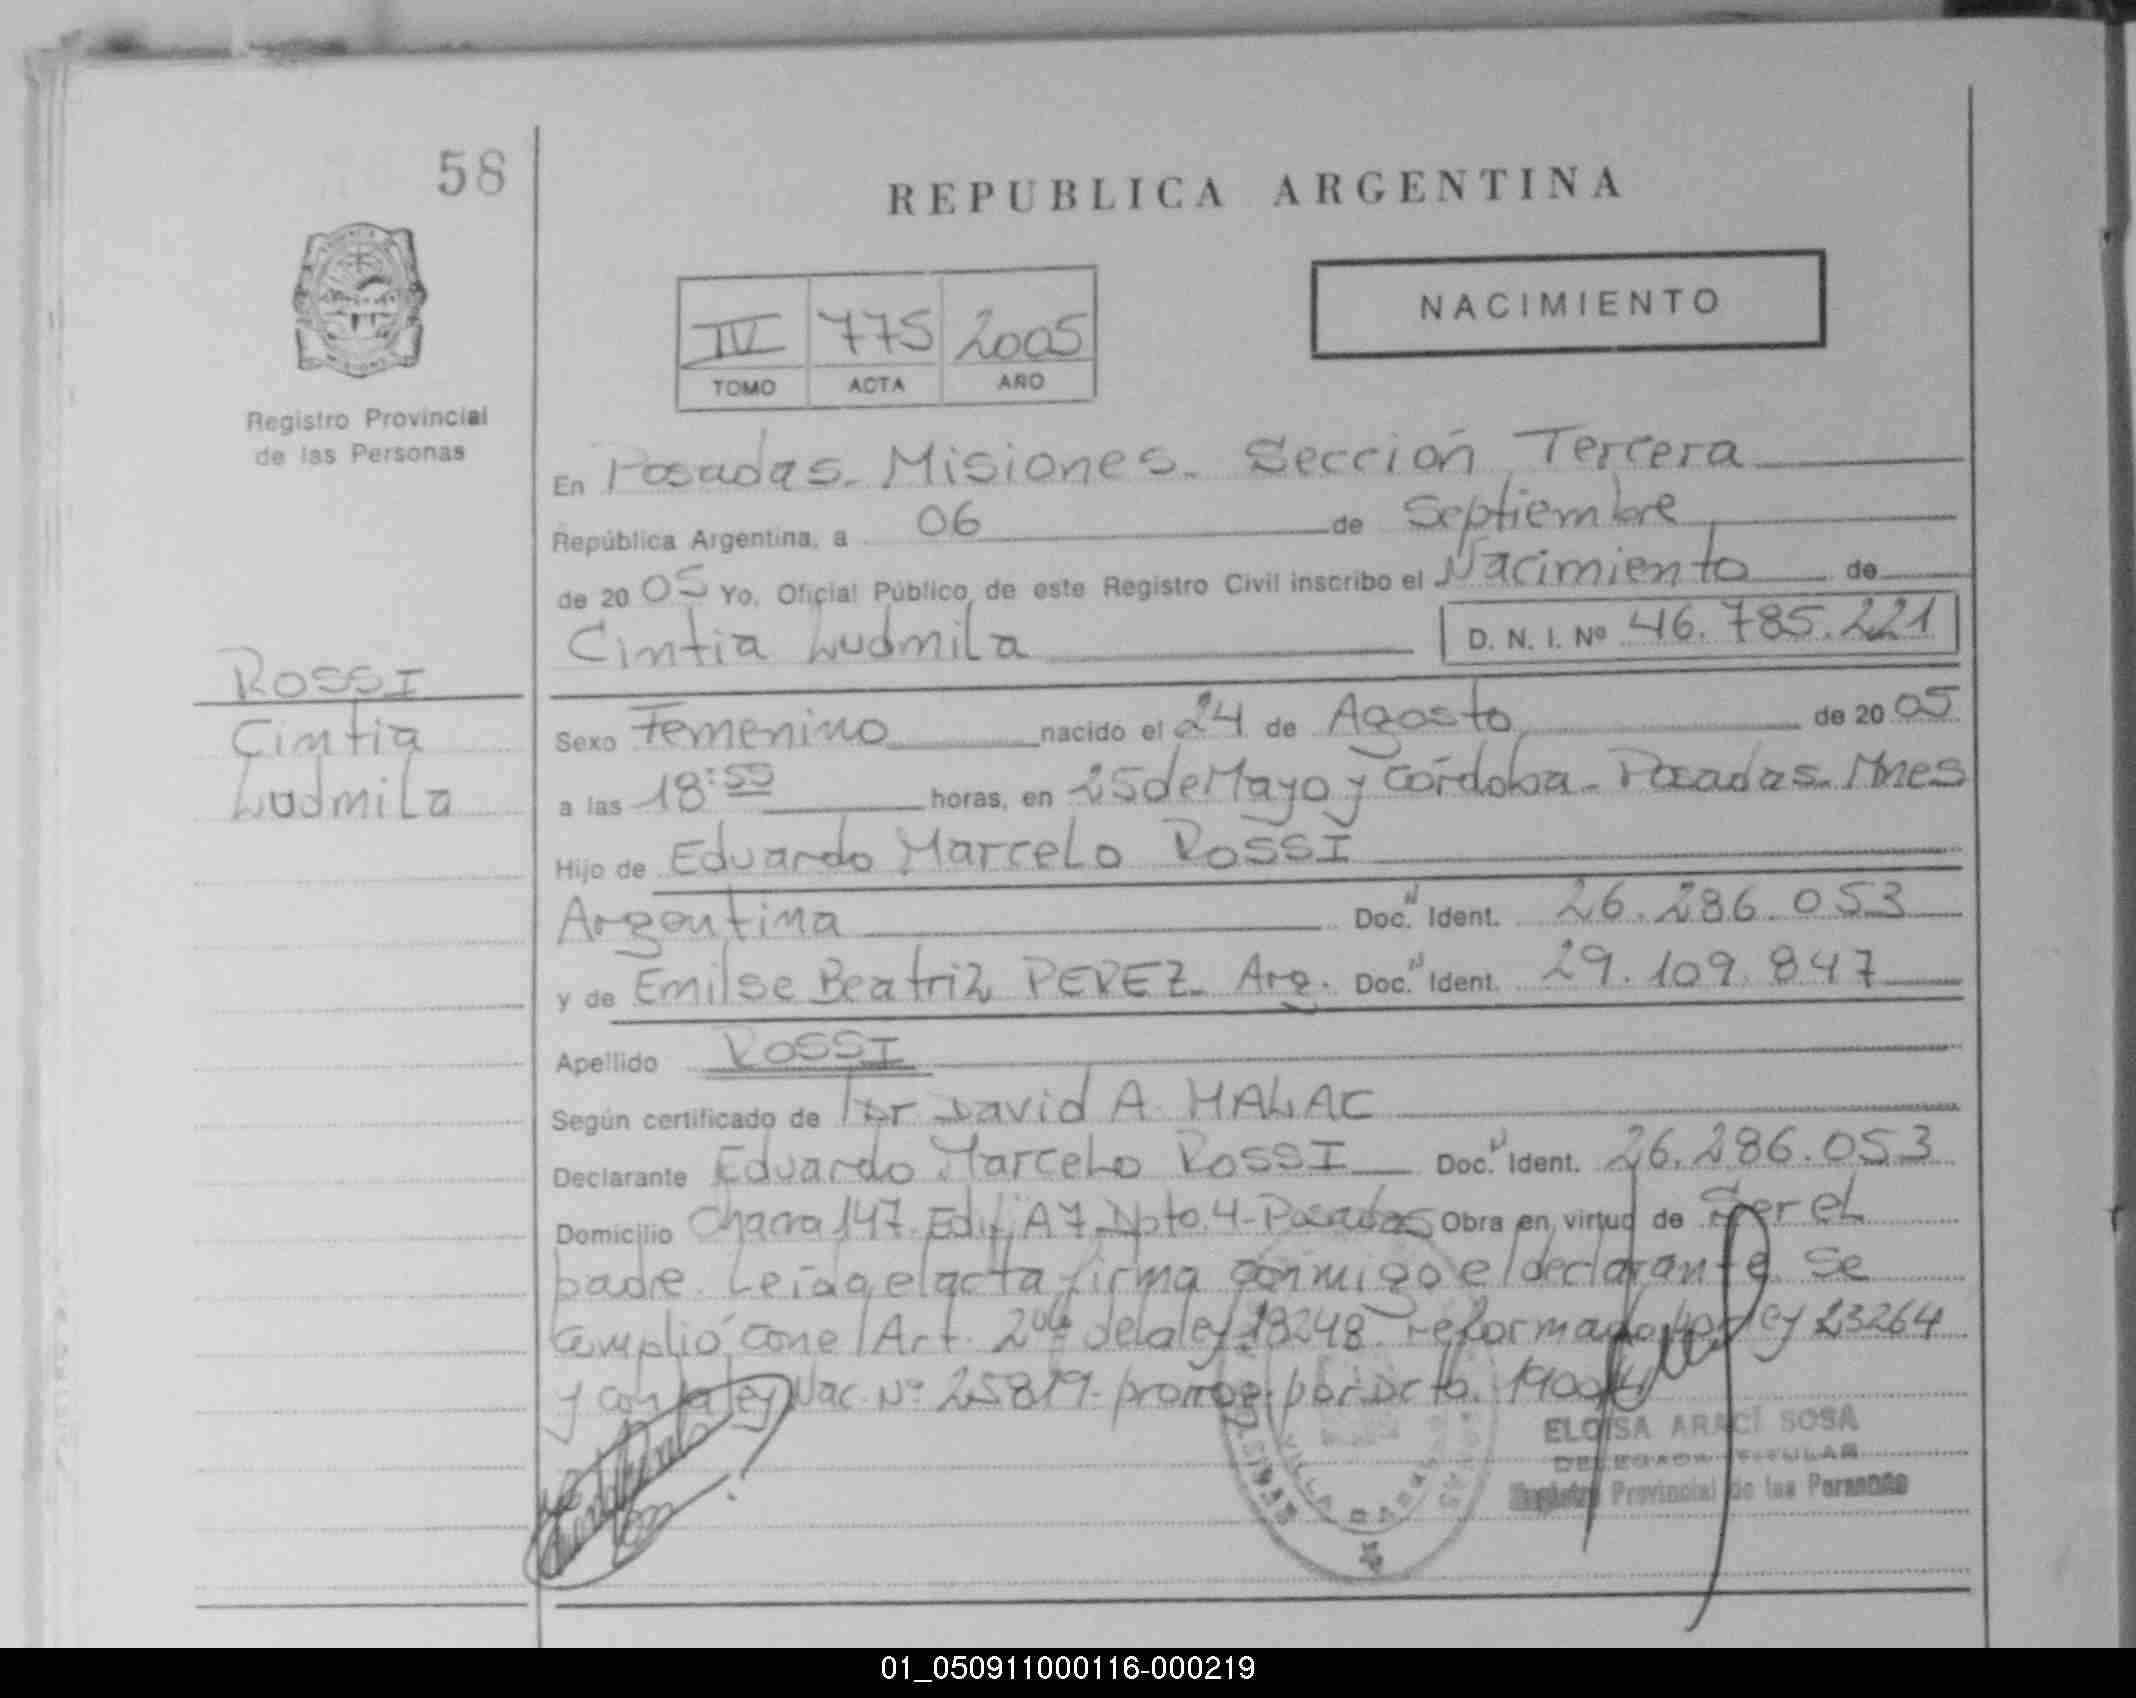 58
REPUBLICA ARGENTINA
NACIMIENTO
IV 775 2005
TOMO ACTA AÑO
Registro Provincial
de las Personas
En Posadas - Misiones - Sección Tercera
República Argentina, a 06 de Septiembre
de 2005 Yo, Oficial Público de este Registro Civil inscribo el Nacimiento de
Cintia Ludmila D. N. I. Nº 46.785.221
ROSSI
Cintia
Ludmila
Sexo Femenino nacido el 24 de Agosto de 2005
a las 18:55 horas, en 25 de Mayo y Córdoba - Posadas - Mnes
Hijo de Eduardo Marcelo ROSSI
Argentina Doc. Ident. 26.286.053
y de Emilse Beatriz PEREZ - Arg. Doc. Ident. 29.109.847
Apellido ROSSI
Según certificado de David A. MALAC
Declarante Eduardo Marcelo ROSSI Doc. Ident. 26.286.053
Domicilio Chacra 147. Edif. A7 Dpto. 4 - Posadas Obra en virtud de Ser el
padre. Leida el acta firma conmigo el declarante. Se
cumplió con el Art. 2 de la ley 18248 reformado por ley 23264
y con la ley Nac. Nº 25819 - por Dcto.
ELOISA ARACÍ SOSA
DELEGADA TITULAR
Registro Provincial de las Personas
VILLA
01_050911000116-000219